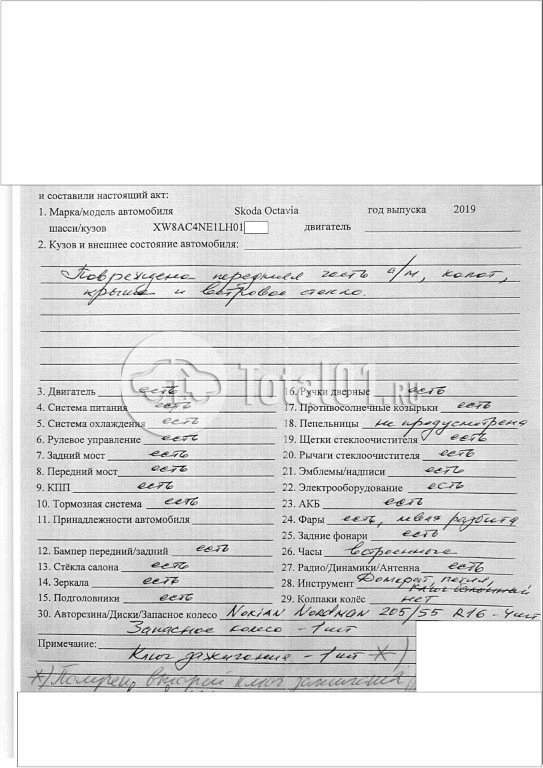 и составили настоящий акт:
1. Марка/модель автомобиля Skoda Octavia год выпуска 2019
шасси/кузов XW8AC4NE1LH01 двигатель
2. Кузов и внешнее состояние автомобиля:
Повреждена передняя часть а/м, капот,
крыша и ветровое стекло.
Total01.RU
3. Двигатель есть
4. Система питания есть
5. Система охлаждения есть
6. Рулевое управление есть
7. Задний мост есть
8. Передний мост есть
9. КПП есть
10. Тормозная система есть
11. Принадлежности автомобиля
12. Бампер передний/задний есть
13. Стёкла салона есть
14. Зеркала есть
15. Подголовники есть
16. Ручки дверные есть
17. Противосолнечные козырьки есть
18. Пепельницы не предусмотрена
19. Щетки стеклоочистителя есть
20. Рычаги стеклоочистителя есть
21. Эмблемы/надписи есть
22. Электрооборудование есть
23. АКБ есть
24. Фары есть, левая разбита
25. Задние фонари есть
26. Часы встроенные
27. Радио/Динамики/Антенна есть
28. Инструмент Домкрат, петля, ключ балонный
29. Колпаки колёс нет
30. Авторезина/Диски/Запасное колесо Nokian Nordman 205/55 R16 - 4 шт
Запасное колесо - 1 шт
Примечание:
Ключ зажигания - 1 шт *)
*) второй ключ зажигания